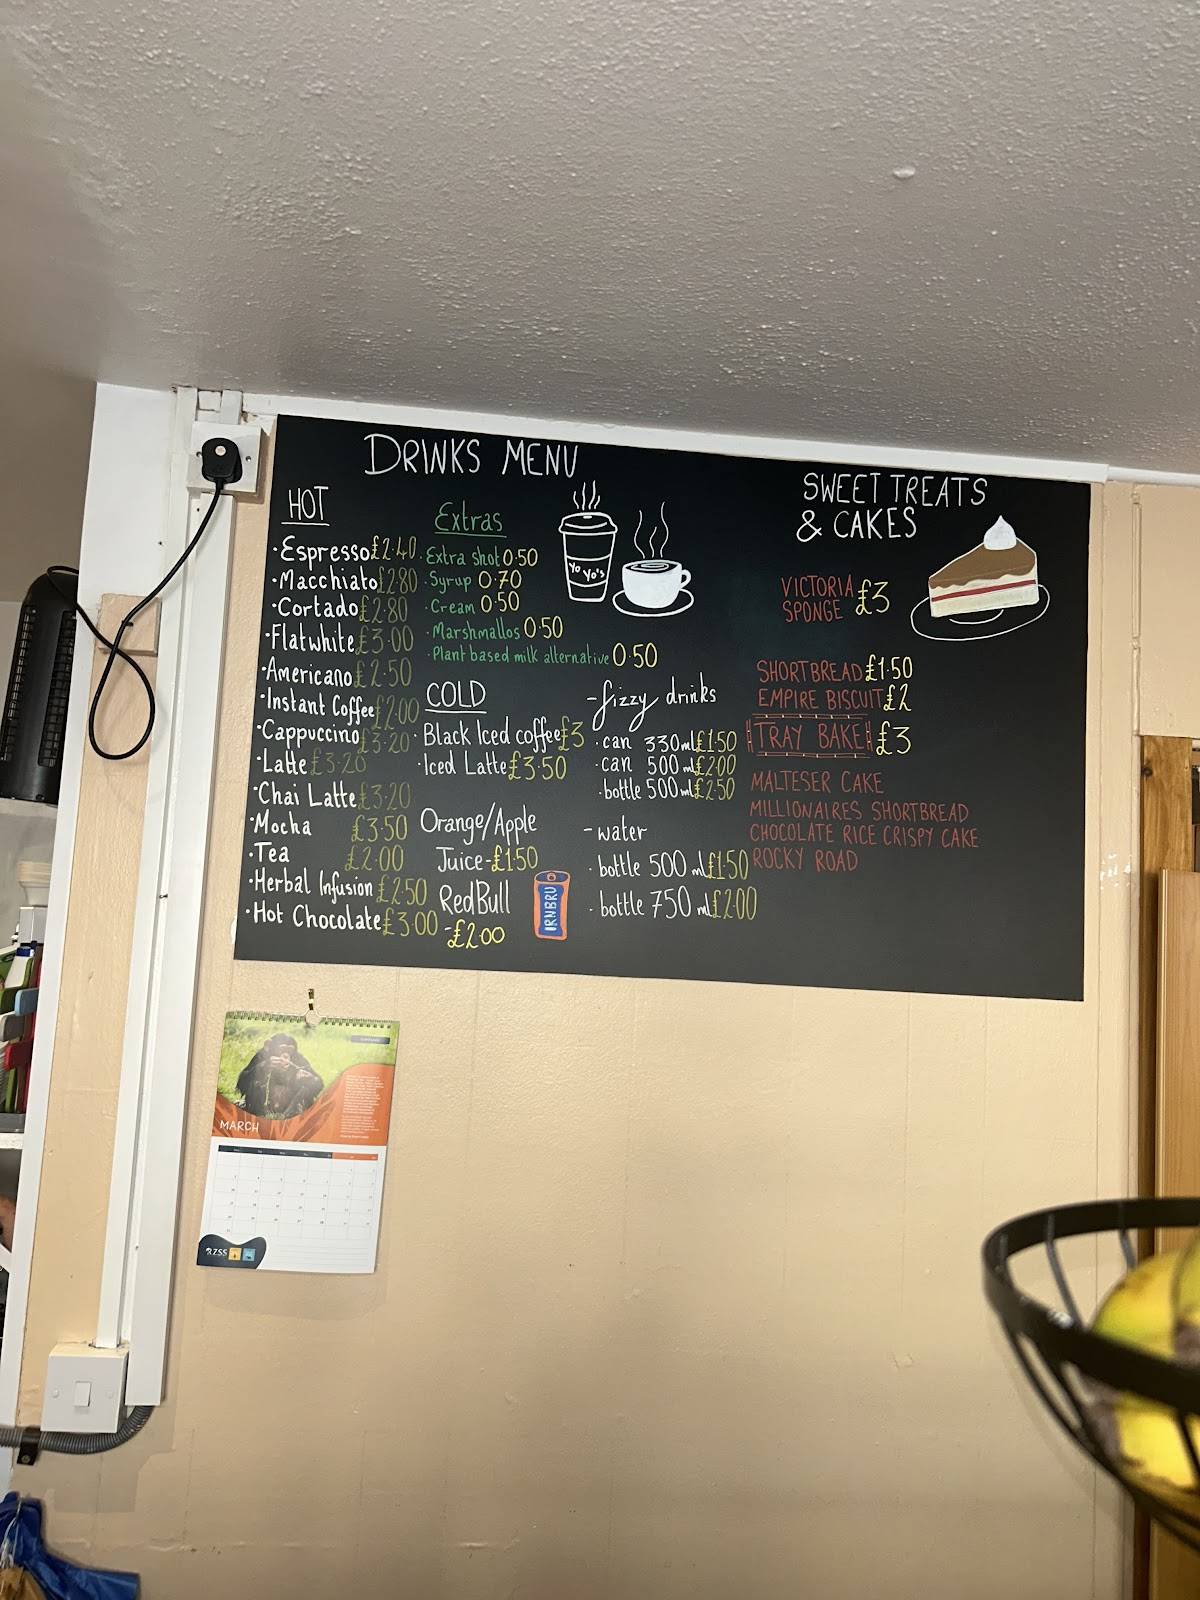 DRINKS MENU
HOT
· Espresso £2·40
· Macchiato £2·80
· Cortado £2·80
· Flatwhite £3·00
· Americano £2·50
· Instant Coffee £2·00
· Cappuccino £3·20
· Latte £3·20
· Chai Latte £3·20
· Mocha £3·50
· Tea £2·00
· Herbal Infusion £2·50
· Hot Chocolate £3·00
Extras
· Extra shot 0·50
· Syrup 0·70
· Cream 0·50
· Marshmallos 0·50
· Plant based milk alternative 0·50
Yo Yo's
COLD
· Black Iced coffee £3
· Iced Latte £3·50
Orange/Apple
Juice - £1·50
RedBull
- £2·00
IRNBRU
- fizzy drinks
· can 330ml £1·50
· can 500 ml £2·00
· bottle 500ml £2·50
- water
· bottle 500 ml £1·50
· bottle 750 ml £2·00
SWEET TREATS
& CAKES
VICTORIA
SPONGE £3
SHORTBREAD £1·50
EMPIRE BISCUIT £2
TRAY BAKE £3
MALTESER CAKE
MILLIONAIRES SHORTBREAD
CHOCOLATE RICE CRISPY CAKE
ROCKY ROAD
MARCH
RZSS